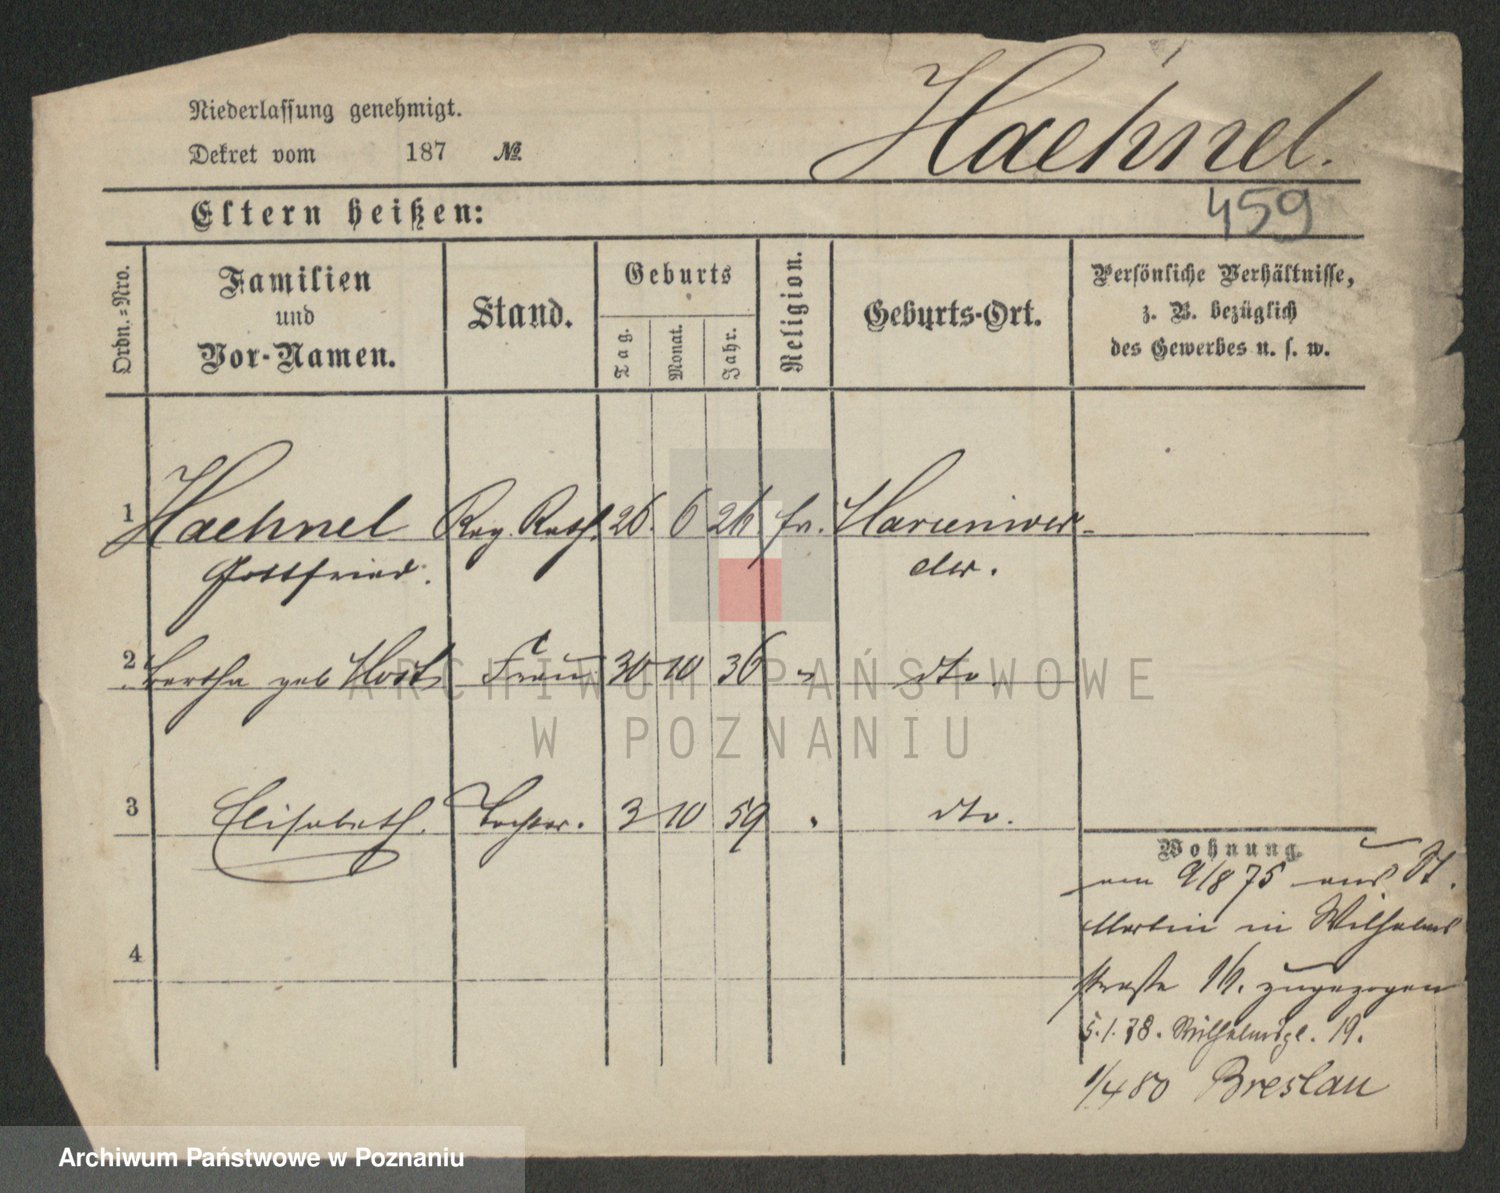 Niederlassung genehmigt.
Dekret vom 187 №
Haehnel.
Eltern heißen:
459
Ordn.=Nro.
Familien
und
Vor-Namen.
Stand.
Geburts
Tag.
Monat.
Jahr.
Religion.
Geburts-Ort.
Persönliche Verhältnisse,
z. B. bezüglich
des Gewerbes u. s. w.
1 Haehnel Reg. Rath. 26. 6 26 Marienwer-
Gottfried. der.
2 Bertha geb Frau 30 10 36 " dto.
3 Elisabeth. Tochter. 3 10 59 " dto.
4
Wohnung.
am 9/8 75 aus St.
Martin in Wilhelms
straße 16. zugezogen
5.1.78. Wilhelmspl. 19.
1/4 80 Breslau
ARCHIWUM PAŃSTWOWE
W POZNANIU
Archiwum Państwowe w Poznaniu